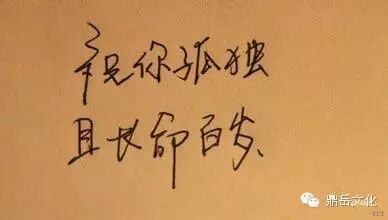 祝你孤独
且长命百岁、
鼎岳文化